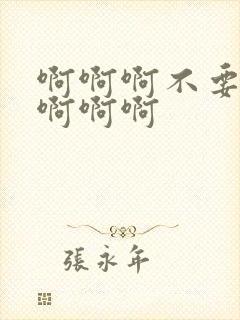 啊啊啊不要
啊啊啊
張永年